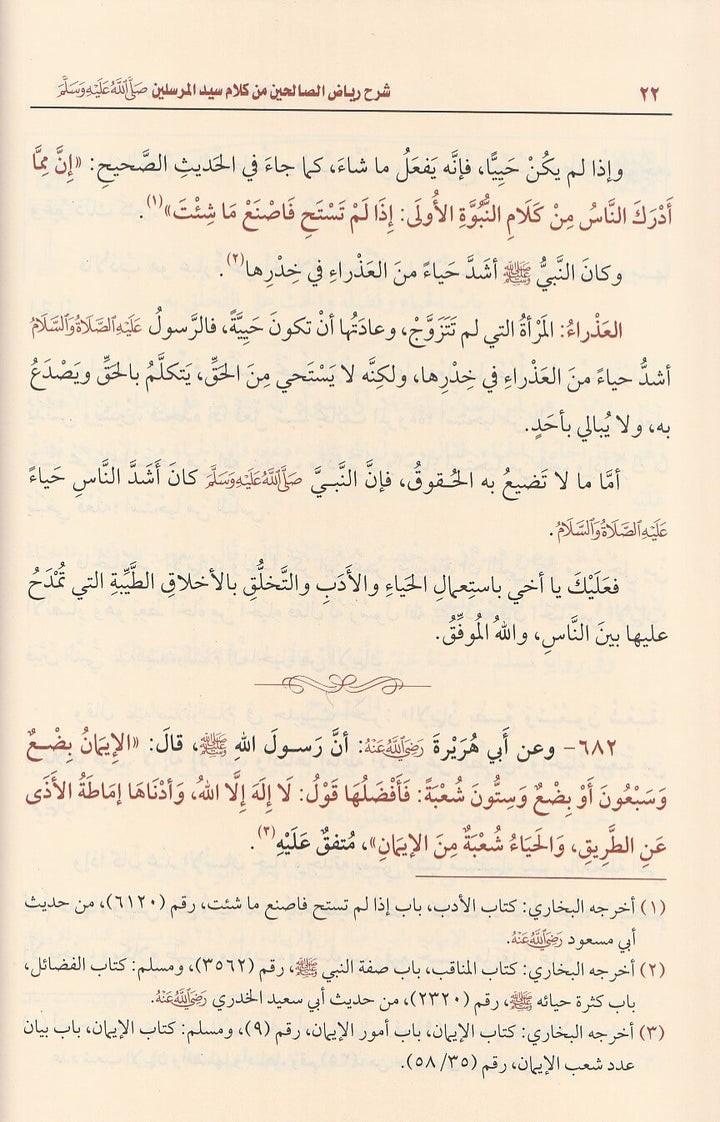 ٢٢ شرح رياض الصالحين من كلام سيد المرسلين صَلَّى اللَّهُ عَلَيْهِ وَسَلَّمَ
وإذا لم يكُنْ حَيِيًّا، فإنَّه يَفعَلُ ما شاءَ، كما جاءَ في الحَديثِ الصَّحيحِ: «إِنَّ مِمَّا
أَدْرَكَ النَّاسُ مِنْ كَلَامِ النُّبُوَّةِ الأُولَى: إِذَا لَمْ تَسْتَحِ فَاصْنَعْ مَا شِئْتَ»(١).
وكانَ النَّبيُّ ﷺ أشَدَّ حَياءً منَ العَذْراءِ في خِدْرِها(٢).
العَذْراءُ: المَرْأةُ التي لم تَتَزَوَّجْ، وعادَتُها أنْ تكونَ حَيِيَّةً، فالرَّسولُ عَلَيْهِ الصَّلَاةُ وَالسَّلَامُ
أشدُّ حياءً منَ العَذْراءِ في خِدْرِها، ولكِنَّه لا يَسْتَحي مِنَ الحَقِّ، يَتكلَّمُ بالحَقِّ ويَصْدَعُ
به، ولا يُبالي بأحَدٍ.
أمَّا ما لا تَضيعُ به الحُقوقُ، فإنَّ النَّبيَّ صَلَّى اللَّهُ عَلَيْهِ وَسَلَّمَ كانَ أَشَدَّ النَّاسِ حَياءً
عَلَيْهِ الصَّلَاةُ وَالسَّلَامُ.
فعَلَيْكَ يا أخي باستِعمالِ الحَياءِ والأدَبِ والتَّخلُّقِ بالأخلاقِ الطَّيِّبةِ التي تُمْدَحُ
عليها بينَ النَّاسِ، واللهُ المُوفِّقُ.
٦٨٢- وعن أَبي هُرَيْرةَ رَضِيَ اللَّهُ عَنْهُ: أنَّ رَسولَ اللهِ ﷺ، قالَ: «الإِيمَانُ بِضْعٌ
وَسَبْعُونَ أَوْ بِضْعٌ وَسِتُّونَ شُعْبَةً: فَأَفْضَلُهَا قَوْلُ: لَا إِلَهَ إِلَّا اللهُ، وَأَدْنَاهَا إمَاطَةُ الأَذَى
عَنِ الطَّرِيقِ، وَالحَيَاءُ شُعْبَةٌ مِنَ الإِيمَانِ»، مُتفقٌ عَلَيْهِ(٣).
(١) أخرجه البخاري: كتاب الأدب، باب إذا لم تستح فاصنع ما شئت، رقم (٦١٢٠)، من حديث
أبي مسعود رَضِيَ اللَّهُ عَنْهُ.
(٢) أخرجه البخاري: كتاب المناقب، باب صفة النبي ﷺ، رقم (٣٥٦٢)، ومسلم: كتاب الفضائل،
باب كثرة حيائه ﷺ، رقم (٢٣٢٠)، من حديث أبي سعيد الخدري رَضِيَ اللَّهُ عَنْهُ.
(٣) أخرجه البخاري: كتاب الإيمان، باب أمور الإيمان، رقم (٩)، ومسلم: كتاب الإيمان، باب بيان
عدد شعب الإيمان، رقم (٥٨/٣٥).